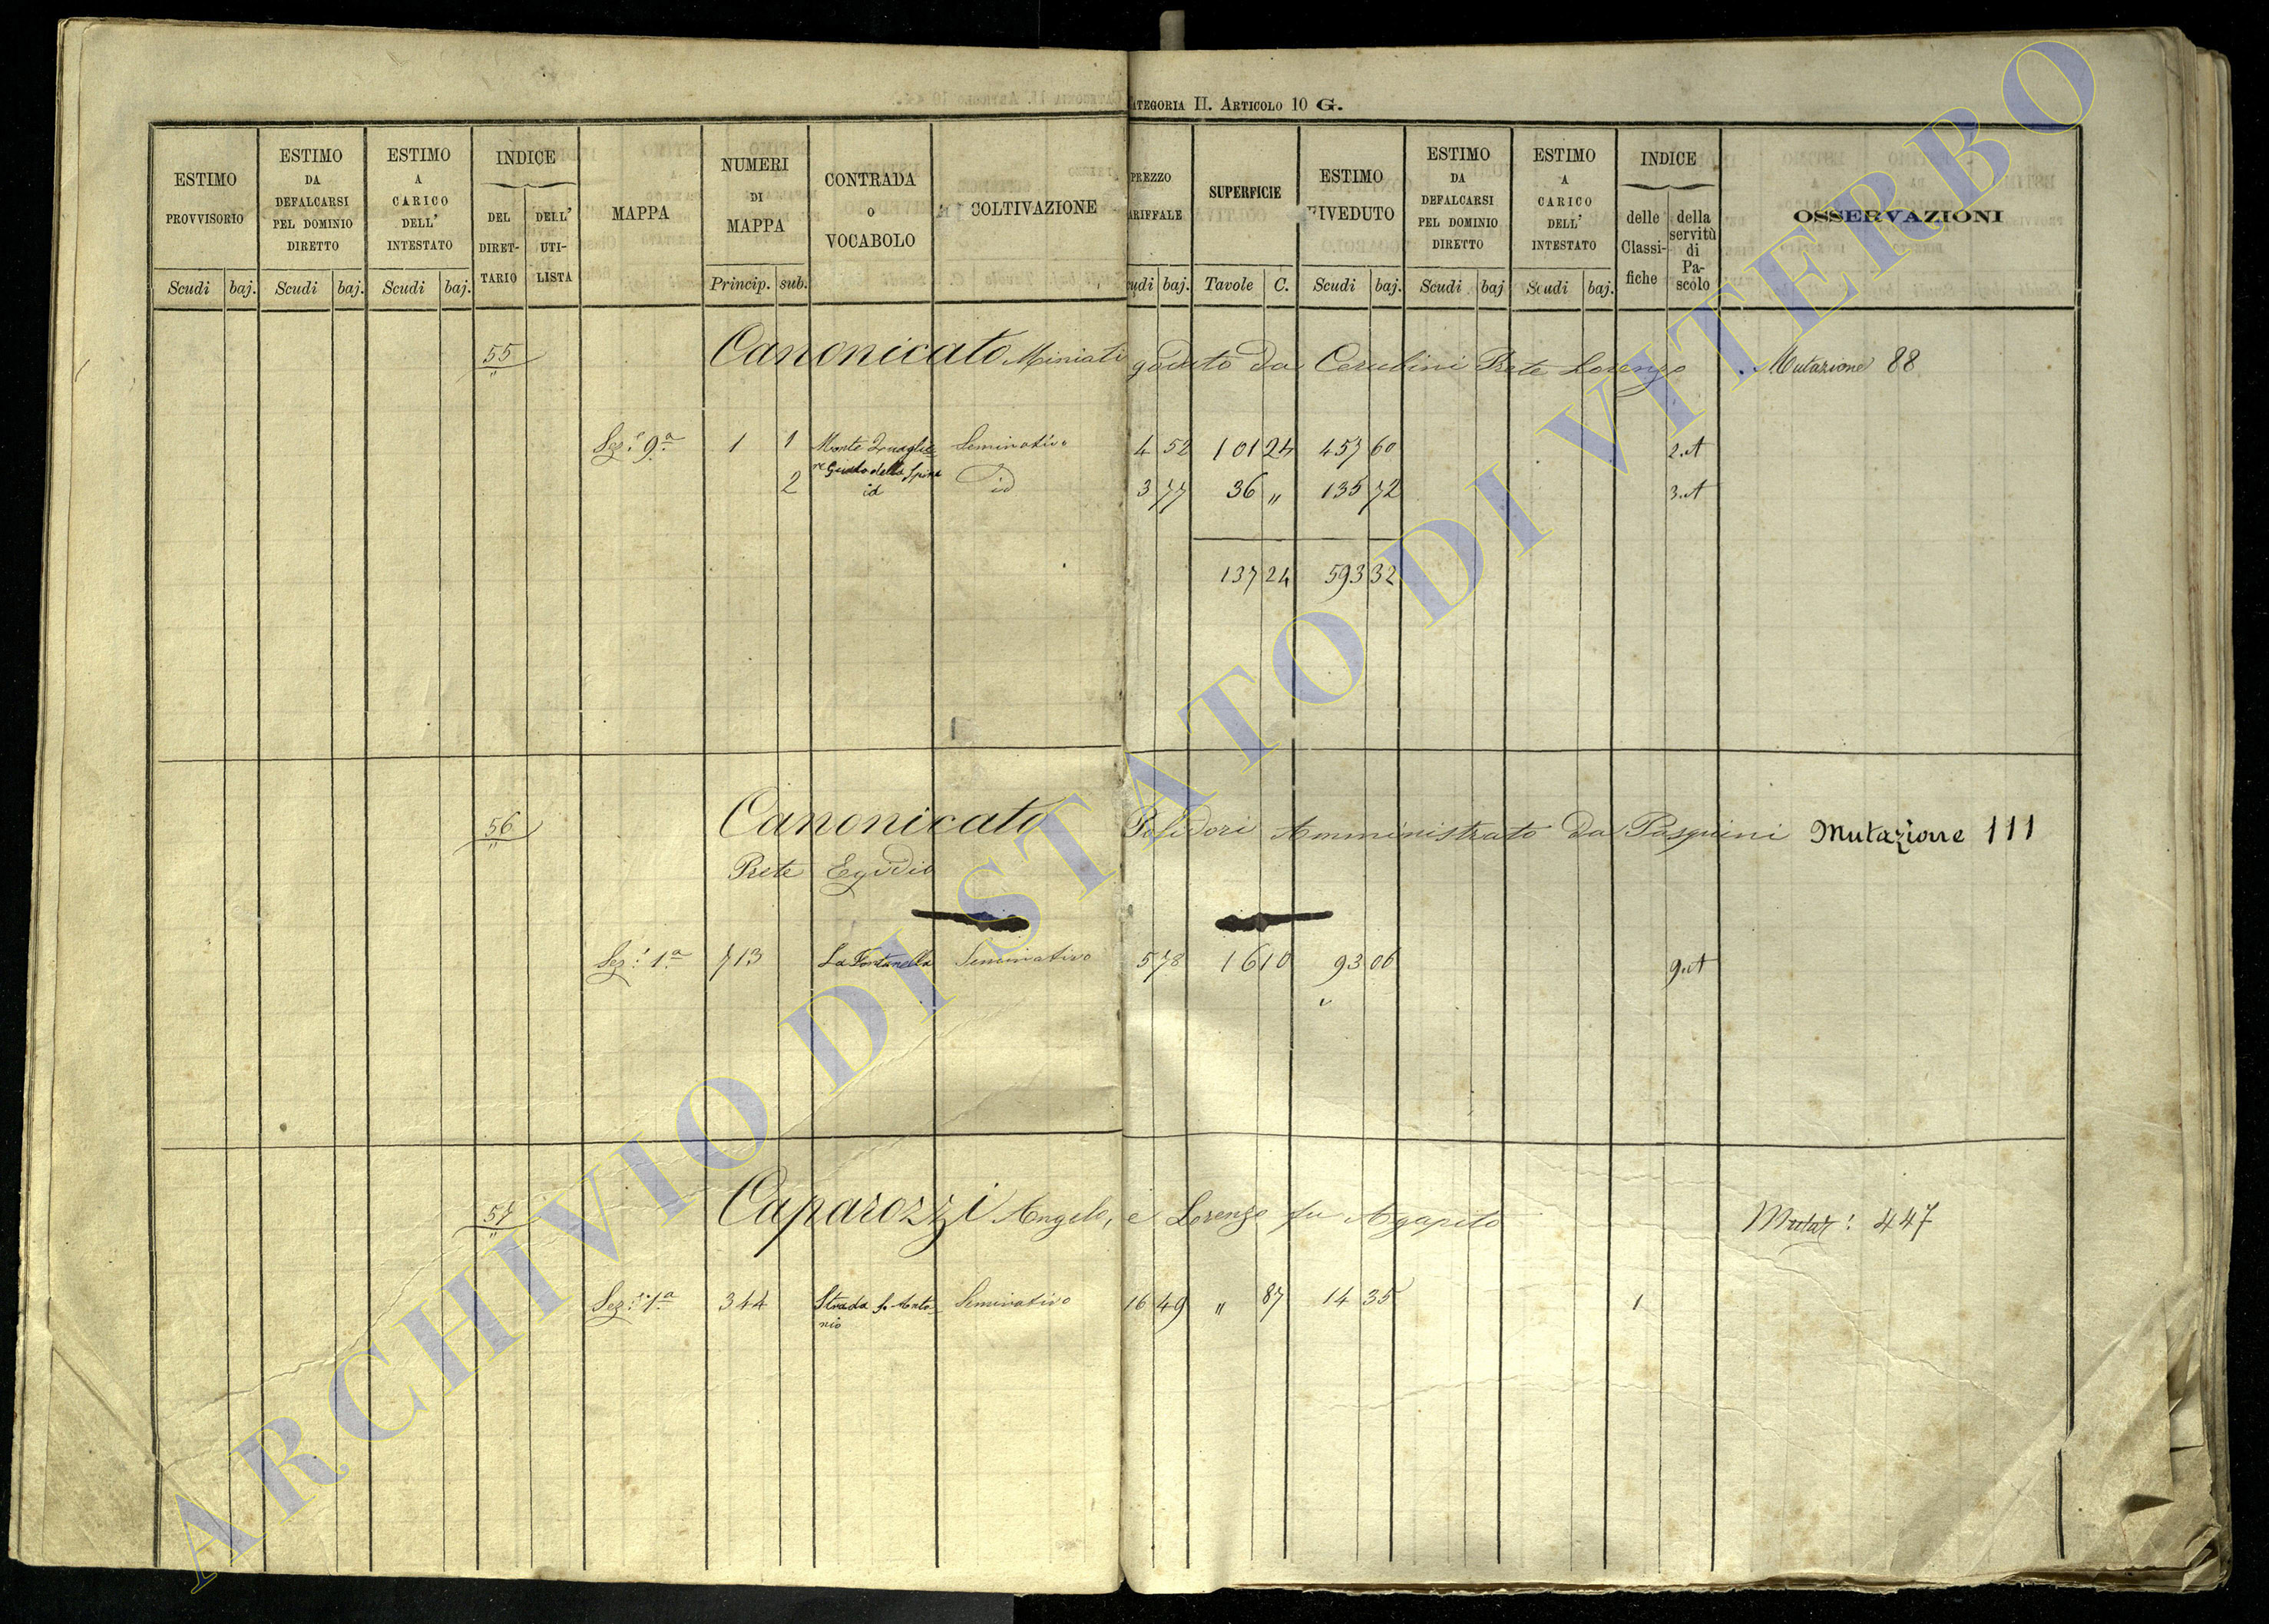 ATEGORIA II. ARTICOLO 10 G.
ESTIMO PROVVISORIO
Scudi baj.
ESTIMO DA DEFALCARSI PEL DOMINIO DIRETTO
Scudi baj.
ESTIMO A CARICO DELL' INTESTATO
Scudi baj.
INDICE
DEL DIRET-TARIO
DELL' UTI-LISTA
MAPPA
NUMERI DI MAPPA
Princip. sub.
CONTRADA O VOCABOLO
COLTIVAZIONE
PREZZO
ARIFFALE
udi baj.
SUPERFICIE
Tavole C.
ESTIMO RIVEDUTO
Scudi baj.
ESTIMO DA DEFALCARSI PEL DOMINIO DIRETTO
Scudi baj
ESTIMO A CARICO DELL' INTESTATO
Scudi baj.
INDICE
delle Classi-fiche
della servitù di Pa-scolo
OSSERVAZIONI
55 Canonicato Miniati goduto da Cerubini Prete Lorenzo Mutazione 88
"
Sez:e 9.a 1 1 Monte Quaglie- Seminativo 4 52 101 24 457 60 2.A
re Guado della Spina
2 id id 3 77 36 " 135 72 3.A
137 24 593 32
56 Canonicato Polidori Amministrato da Pasquini Mutazione 111
"
Prete Egidio
Sez:e 1.a 713 La Fontanella Seminativo 5 78 16 10 93 06 9.A
57 Caparozzi Angelo, e Lorenzo fu Agapito Mutaz: 447
"
Sez:e 1.a 344 Strada S. Anto- Seminativo 16 49 " 87 14 35 1
nio
ARCHIVIO DI STATO DI VITERBO